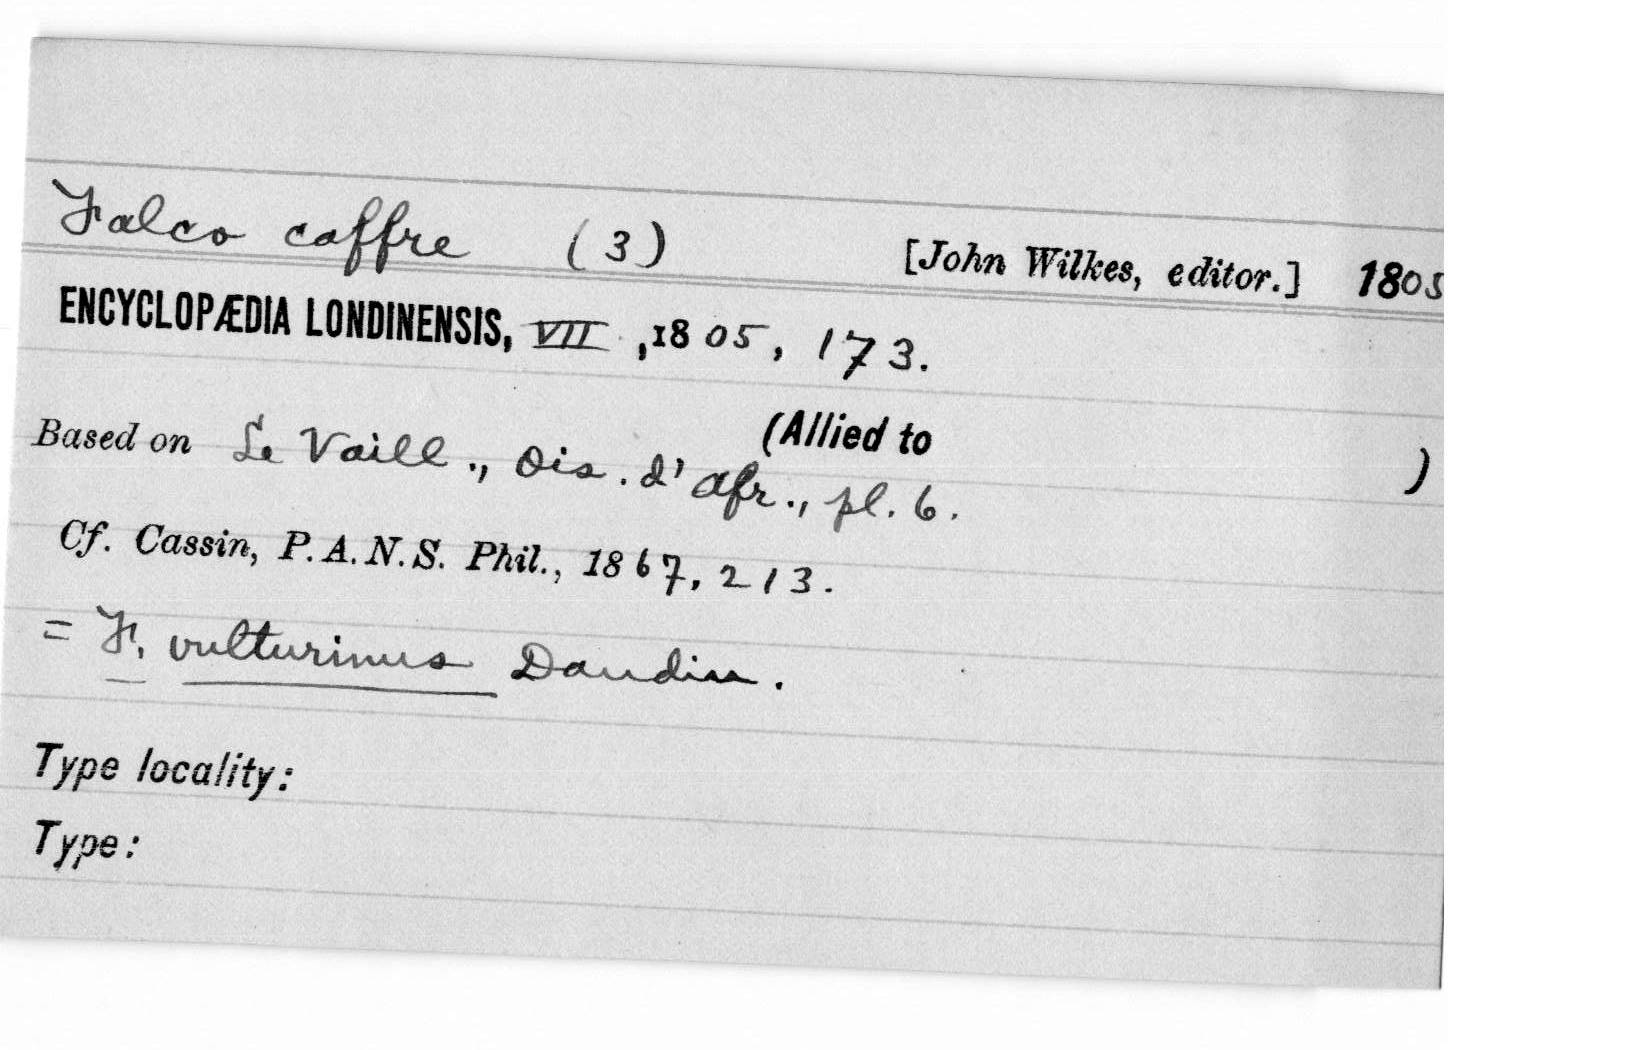 Falco caffre (3) [John Wilkes, editor.] 1805
ENCYCLOPÆDIA LONDINENSIS, VII, 1805, 173.
(Allied to )
Based on Le Vaill., Ois. d'Afr., pl. 6.
Cf. Cassin, P. A. N. S. Phil., 1867, 213.
= F. vulturinus Daudin.
Type locality:
Type: